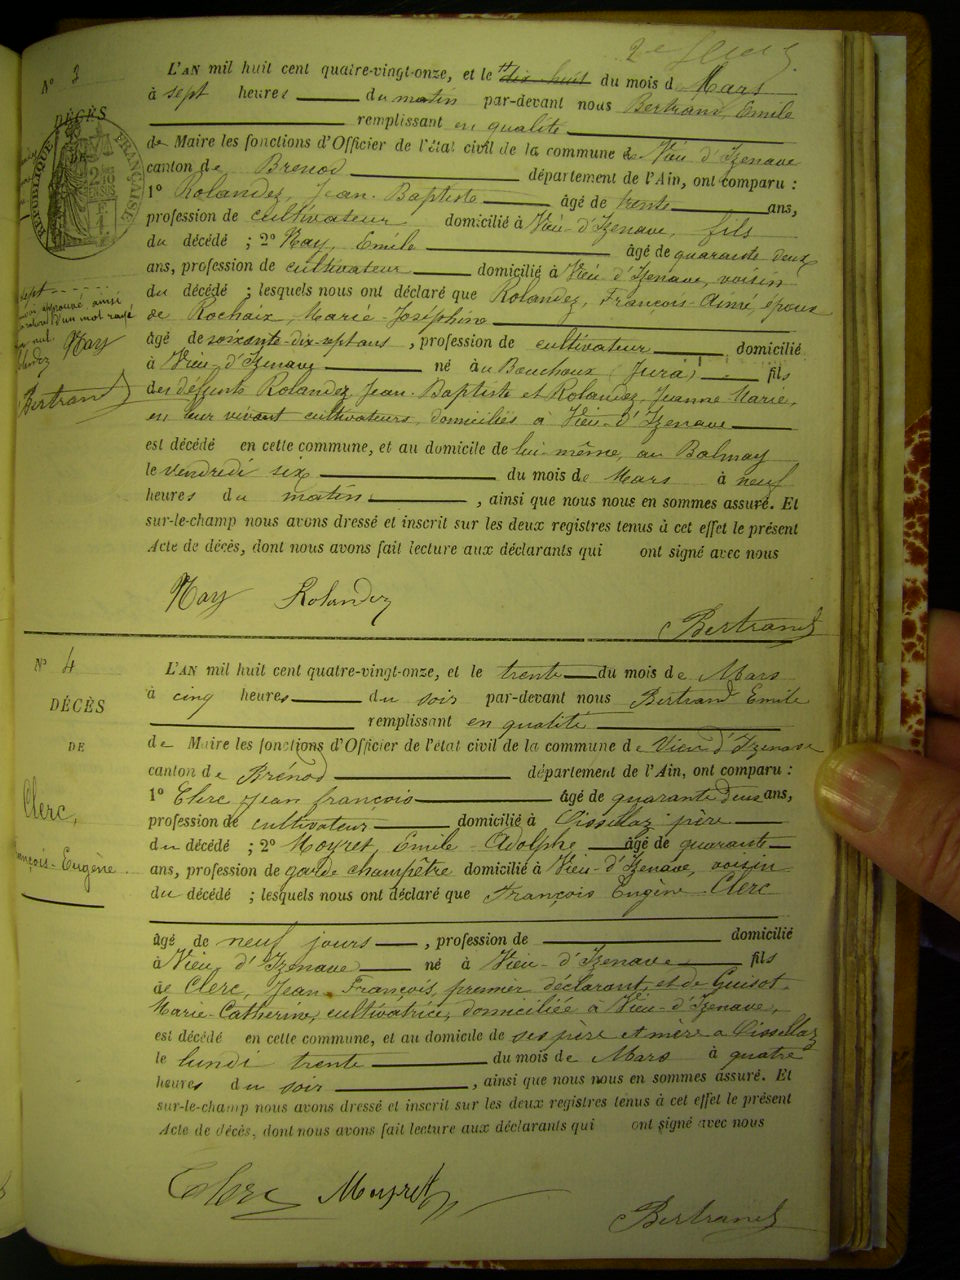 2e feuillet
N° 3
DÉCÈS
DE
RÉPUBLIQUE FRANÇAISE
L'AN mil huit cent quatre-vingt-onze, et le dix-huit du mois d Mars
à sept heures du matin par-devant nous Bertrand, Emile
remplissant en qualité
de Maire les fonctions d'Officier de l'état civil de la commune de Vieu d'Izenave
canton de Brenod département de l'Ain, ont comparu :
1° Rolandez, Jean-Baptiste âgé de trente ans,
profession de cultivateur domicilié à Vieu-d'Izenave, fils
du décédé ; 2° Nay, Emile âgé de quarante deux
ans, profession de cultivateur domicilié à Vieu d'Izenave, voisin
du décédé ; lesquels nous ont déclaré que Rolandez, François-Aimé, époux
de Rochaix, Marie-Joséphine
âgé de soixante-dix-sept ans, profession de cultivateur domicilié
à Vieu-d'Izenave né au Bouchoux (Jura) fils
des défunts Rolandez, Jean-Baptiste et Rolandez, Jeanne Marie,
en leur vivant cultivateurs, domiciliés à Vieu-d'Izenave
est décédé en cette commune, et au domicile de lui-même, au Balmay
le vendredi six du mois de Mars à neuf
heures du matin, ainsi que nous nous en sommes assuré. Et
sur-le-champ nous avons dressé et inscrit sur les deux registres tenus à cet effet le présent
Acte de décès, dont nous avons fait lecture aux déclarants qui ont signé avec nous
sept
approuvé ainsi
d'un mot rayé
nul.
Nay
Bertrand
Nay Rolandez
Bertrand
N° 4
DÉCÈS
DE
Clerc,
François-Eugène
L'AN mil huit cent quatre-vingt-onze, et le trente du mois de Mars
à cinq heures du soir par-devant nous Bertrand Emile
remplissant en qualité
de Maire les fonctions d'Officier de l'état civil de la commune de Vieu d'Izenave
canton de Brénod département de l'Ain, ont comparu :
1° Clerc Jean françois âgé de quarante deux ans,
profession de cultivateur domicilié à Cissellaz père
du décédé ; 2° Moyret, Emile-Adolphe âgé de quarante
ans, profession de garde champêtre domicilié à Vieu-d'Izenave, voisin
du décédé ; lesquels nous ont déclaré que François Eugène Clerc
âgé de neuf jours, profession de domicilié
à Vieu d'Izenave né à Vieu-d'Izenave fils
de Clerc, Jean-François, premier déclarant, et de Guisot
Marie-Catherine, cultivatrice, domiciliée à Vieu-d'Izenave,
est décédé en cette commune, et au domicile de ses père et mère a Cissellaz
le lundi trente du mois de Mars à quatre
heures du soir, ainsi que nous nous en sommes assuré. Et
sur-le-champ nous avons dressé et inscrit sur les deux registres tenus à cet effet le présent
Acte de décès, dont nous avons fait lecture aux déclarants qui ont signé avec nous
Clerc Moyret
Bertrand